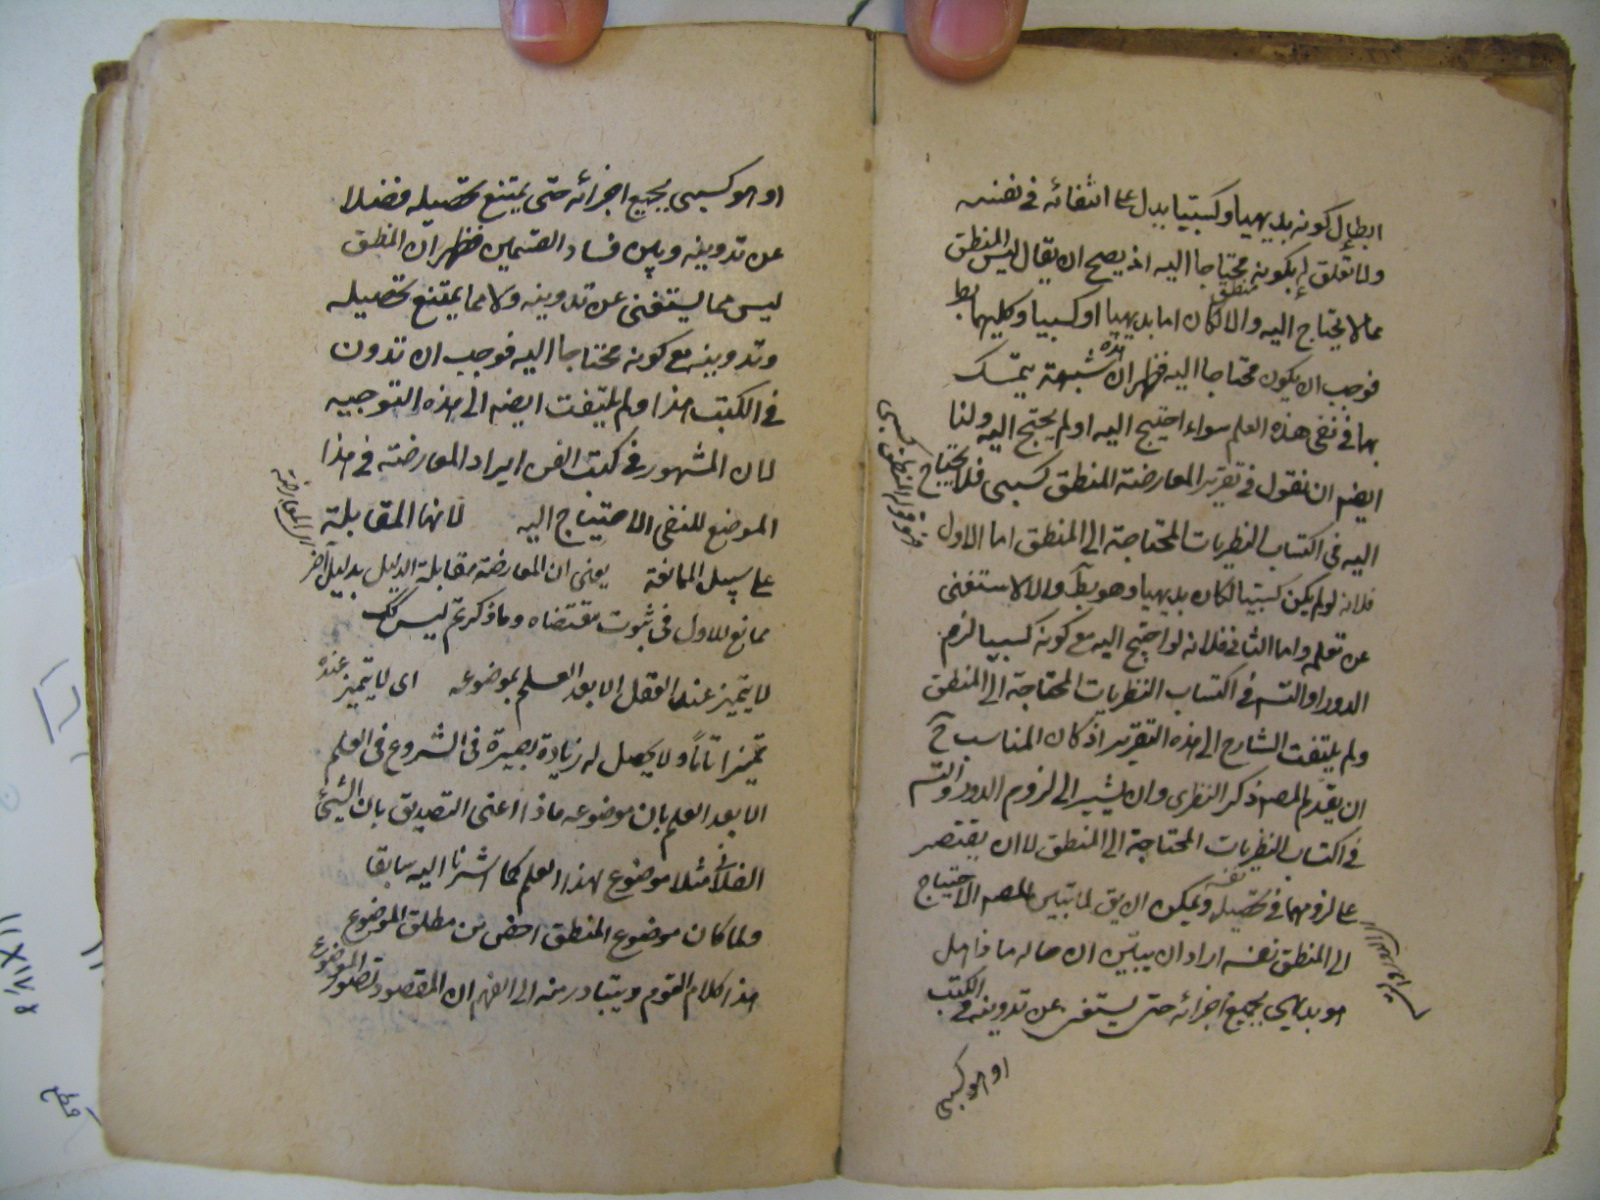 ابطال كونه بديهيا وكسبيا يدل على انتفائه في نفسه
ولا تعلق له بكونه محتاجا اليه اذ يصح ان يقال ليس المنطق
مما لا يحتاج اليه والا لكان اما بديهيا او كسبيا وكليهما بط
منطق
فوجب ان يكون محتاجا اليه فظهر ان هذه شبهة يتمسك
بها في نفي هذه العلم سواء احتيج اليه او لم يحتج اليه ولنا
ايضا ان نقول في تقرير المعارضة المنطق كسبي فلا يحتاج
اليه في اكتساب النظريات المحتاجة الى المنطق اما الاول
فلانه لو لم يكن كسبيا لكان بديهيا وهو بط والا لاستغنى
عن تعلمه واما الثاني فلانه لو احتيج اليه مع كونه كسبيا لزم
الدور او التسم في اكتساب النظريات المحتاجة الى المنطق
ولم يلتفت الشارح الى هذه التقرير اذ كان المناسب ح
ان يقدم المصم ذكر النظرى وان يشير الى لزوم الدور والتسم
في اكتساب النظريات المحتاجة الى المنطق لا ان يقتصر
على لزومهما في تحصيله ويمكن ان يق لما تبين للمصم الاحتياج
نفسه
الى المنطق نفسه اراد ان يبين ان حاله ماذا هل
هو بديهي بجميع اجزائه حتى يستغنى عن تدوينه في الكتب
او هو كسبي
او هو كسبي بجميع اجزائه حتى يمتنع تحصيله فضلا
عن تدوينه وبين فساد القسمين فظهر ان المنطق
ليس مما يستغنى عن تدوينه ولا مما يمتنع تحصيله
وتدوينه مع كونه محتاجا اليه فوجب ان تدون
في الكتب هذا ولم يلتفت ايضا الى هذه التوجيه
لان المشهور في كتب الفن ايراد المعارضة في هذا
الموضع للنفي الاحتياج اليه لانها المقابلة
اى المعارضة
على سبيل الممانعة يعنى ان المعارضة مقابلة الدليل بدليل آخر
ممانع للاول في ثبوت مقتضاه وما ذكرتم ليس كك
لا يتميز عند العقل الا بعد العلم بموضوعه اى لا يتميز عنده
تميزا تاما ولا يحصل له زيادة بصيرة في الشروع في العلم
الا بعد العلم بان موضوعه ماذا اعنى التصديق بان الشيء
الفلانى مثلا موضوع لهذا العلم كما اشرنا اليه سابقا
ولما كان موضوع المنطق اخص من مطلق الموضوع
هذا كلام القوم ويتبادر منه الى الفهم ان المقصود تصور الموضوع